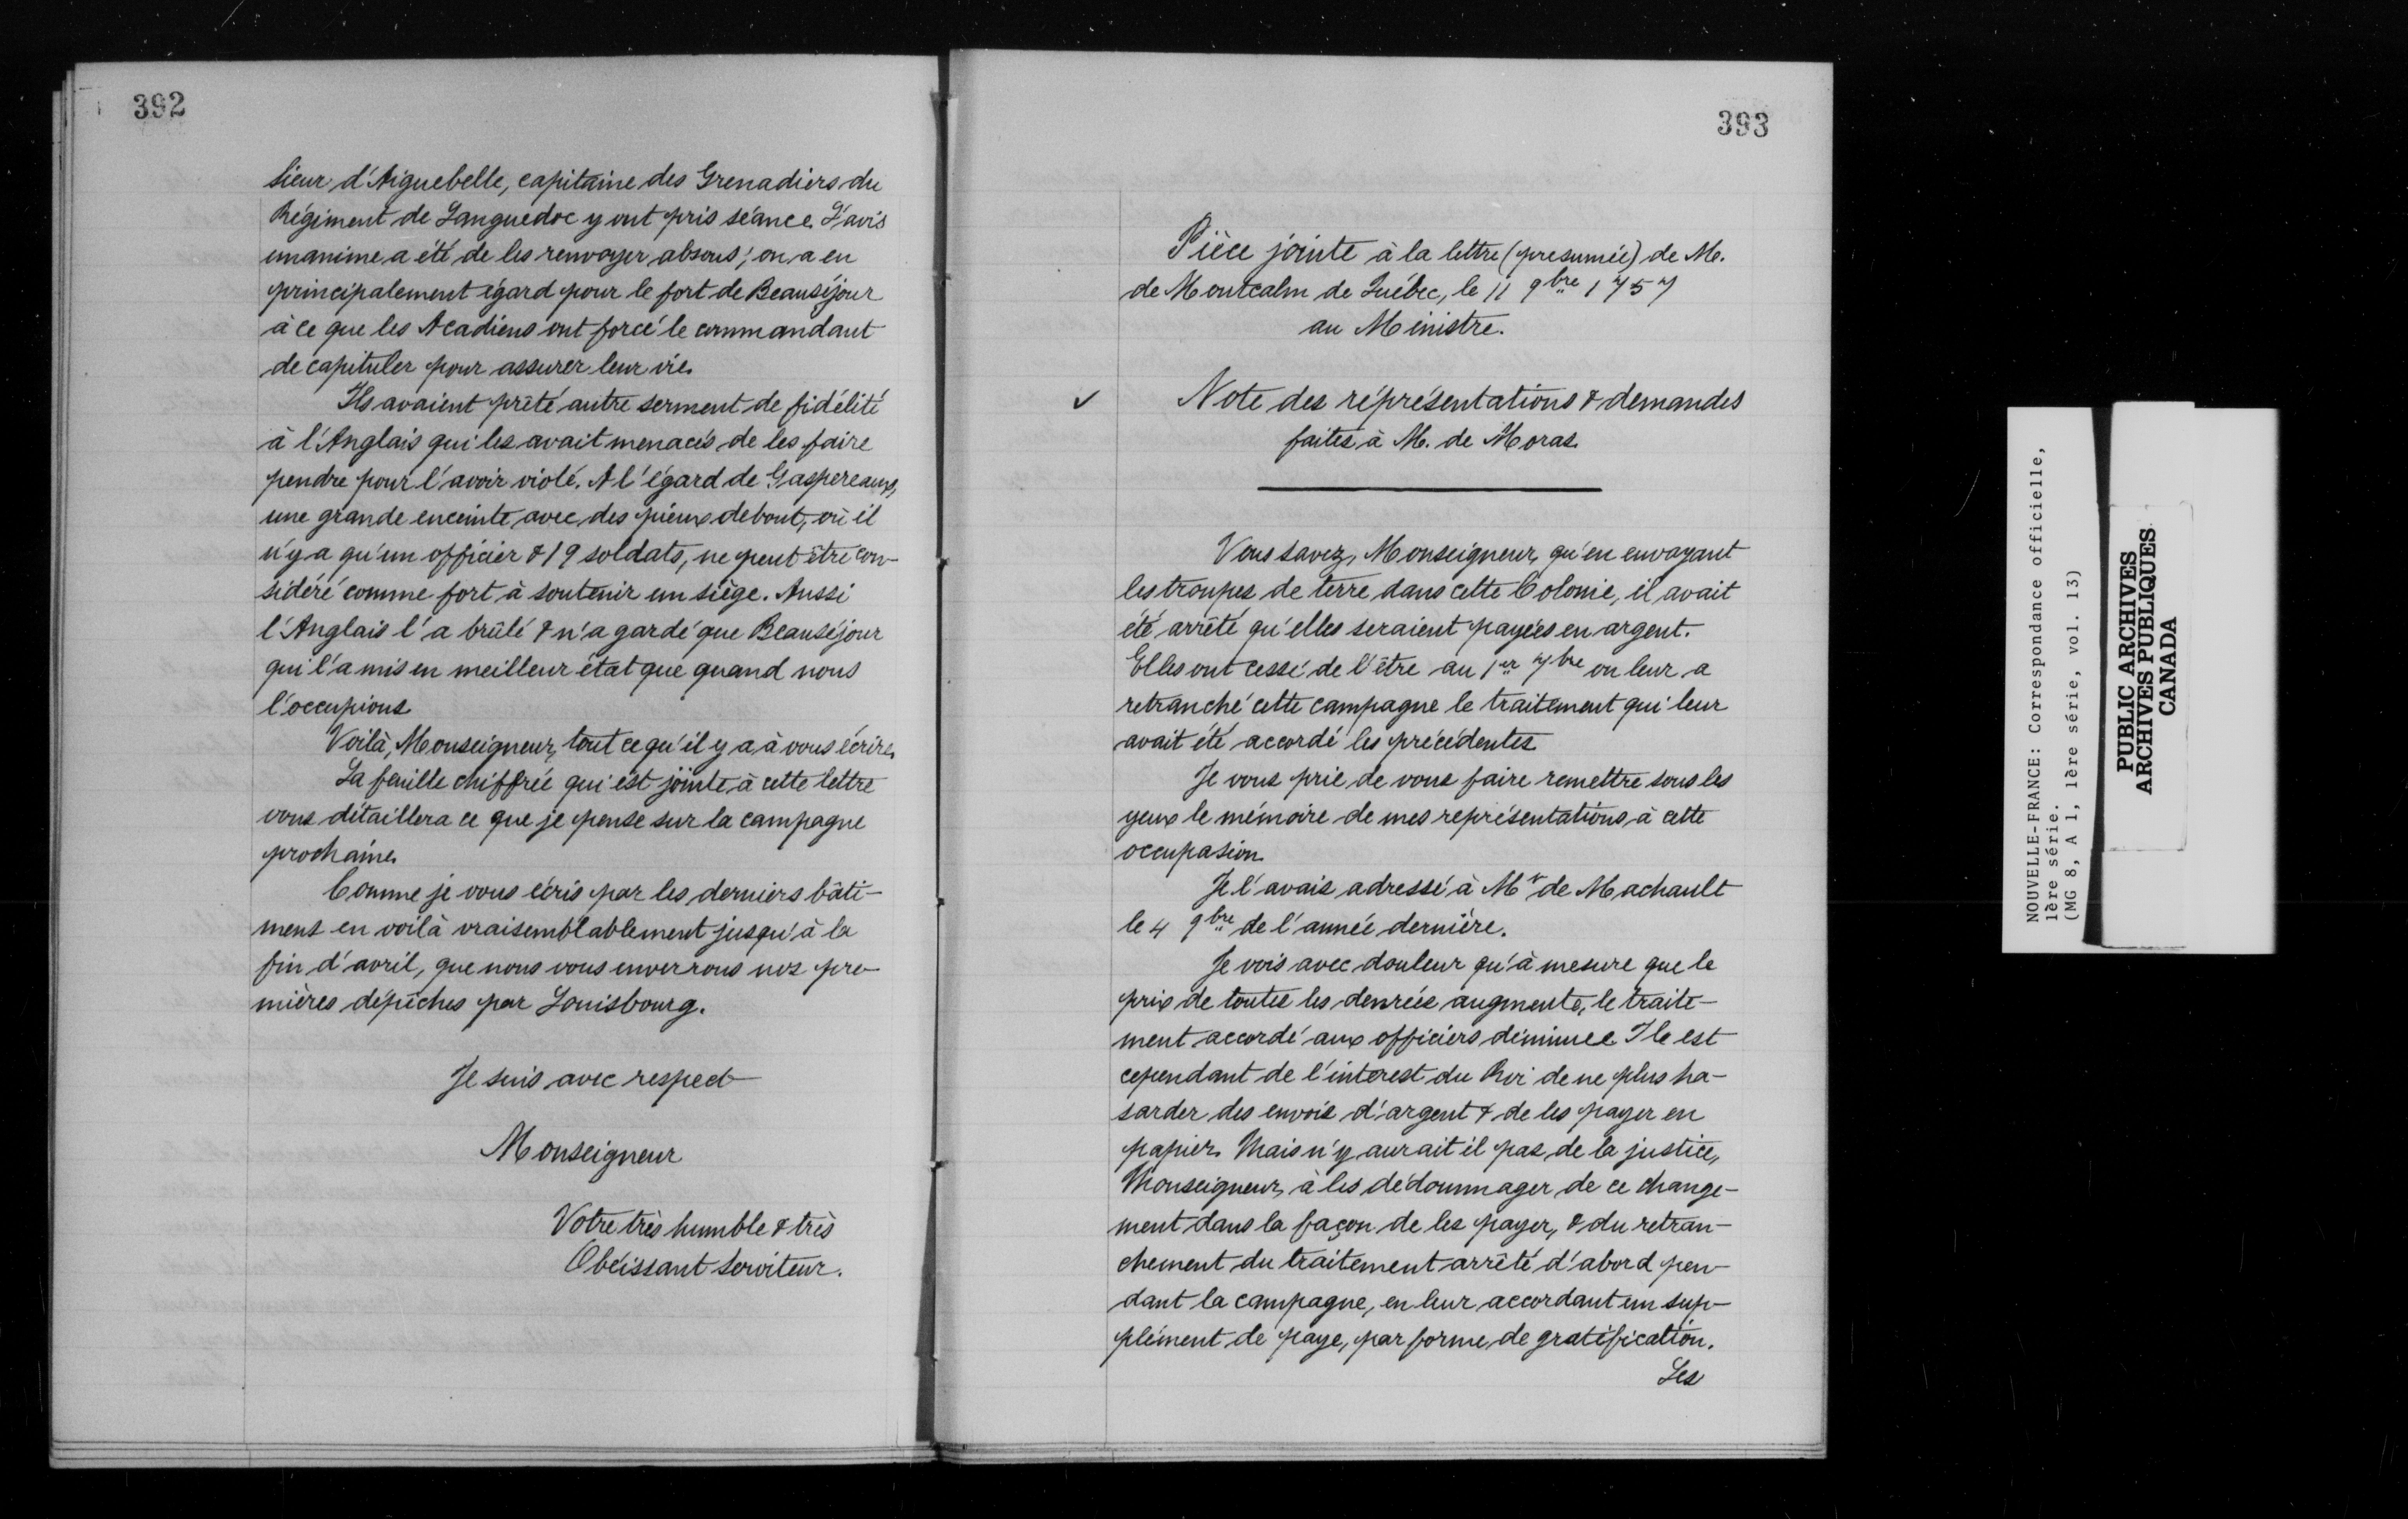 392
sieur d'Aiguebelle, capitaine des Grenadiers du
Régiment de Languedoc y ont pris séance. L'avis
unanime a été de les renvoyer absous; on a eu
principalement égard pour le fort de Beauséjour
à ce que les Acadiens ont forcé le commandant
de capituler pour assurer leur vie.
Ils avaient prêté autre serment de fidélité
à l'Anglais qui les avait menacés de les faire
pendre pour l'avoir violé. A l'égard de Gaspereaux,
une grande enceinte avec des pieux debout, où il
n'y a qu'un officier & 19 soldats, ne peut être con-
sidéré comme fort à soutenir un siège. Aussi
l'Anglais l'a brûlé & n'a gardé que Beauséjour
qui l'a mis en meilleur état que quand nous
l'occupions.
Voilà, Monseigneur, tout ce qu'il y a à vous écrire.
La feuille chiffrée qui est jointe à cette lettre
vous détaillera ce que je pense sur la campagne
prochaine.
Comme je vous écris par les derniers bâti-
ment en voilà vraisemblablement jusqu'à la
fin d'avril, que nous vous enverrons nos pre-
mières dépêches par Louisbourg.
Je suis avec respect
Monseigneur
Votre très humble & très
Obéissant serviteur.
393
Pièce jointe à la lettre (presumée) de M.
de Montcalm de Québec, le 11 9bre 1757
au Ministre.
✓ Note des réprésentations & demandes
faites à M. de Moras.
Vous savez, Monseigneur, qu'en envoyant
les troupes de terre dans cette Colonie, il avait
été arrêté qu'elles seraient payées en argent.
Elles ont cessé de l'être au 1er 7bre on leur a
retranché cette campagne le traitement qui leur
avait été accordé les précédentes.
Je vous prie de vous faire remettre sous les
yeux le mémoire de mes représentations à cette
occupasion.
Je l'avais adressé à Mr de Machault
le 4 9bre de l'année dernière.
Je vois avec douleur qu'à mesure que le
prix de toutes les denrées augmente, le traite-
ment accordé aux officiers diminue Ile est
cependant de l'interest du Roi de ne plus ha-
sarder des envois d'argent & de les payer en
papier. Mais n'y aurait il pas de la justice,
Monseigneur, à les dédommager de ce change-
ment dans la façon de les payer, & du retran-
chement du traitement arrêté d'abord pen-
dant la campagne, en leur accordant un sup-
plément de paye, par forme de gratification.
Les
NOUVELLE-FRANCE: Correspondance officielle,
1ère série.
(MG 8, A 1, 1ère série, vol. 13)
PUBLIC ARCHIVES
ARCHIVES PUBLIQUES
CANADA